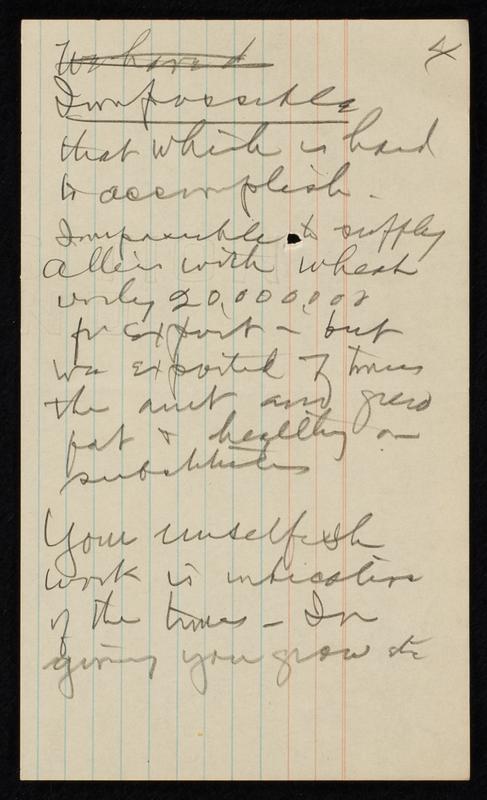 4
We have d
Impossible
that which is hard
to accomplish -
Impossible to supply
Allies with wheat
only 20,000,000
for Export - but
we exported 7 times
the amt and grew
fat & healthy on
substitutes
Your unselfish
work is indicative
of the times - In
giving you grow etc